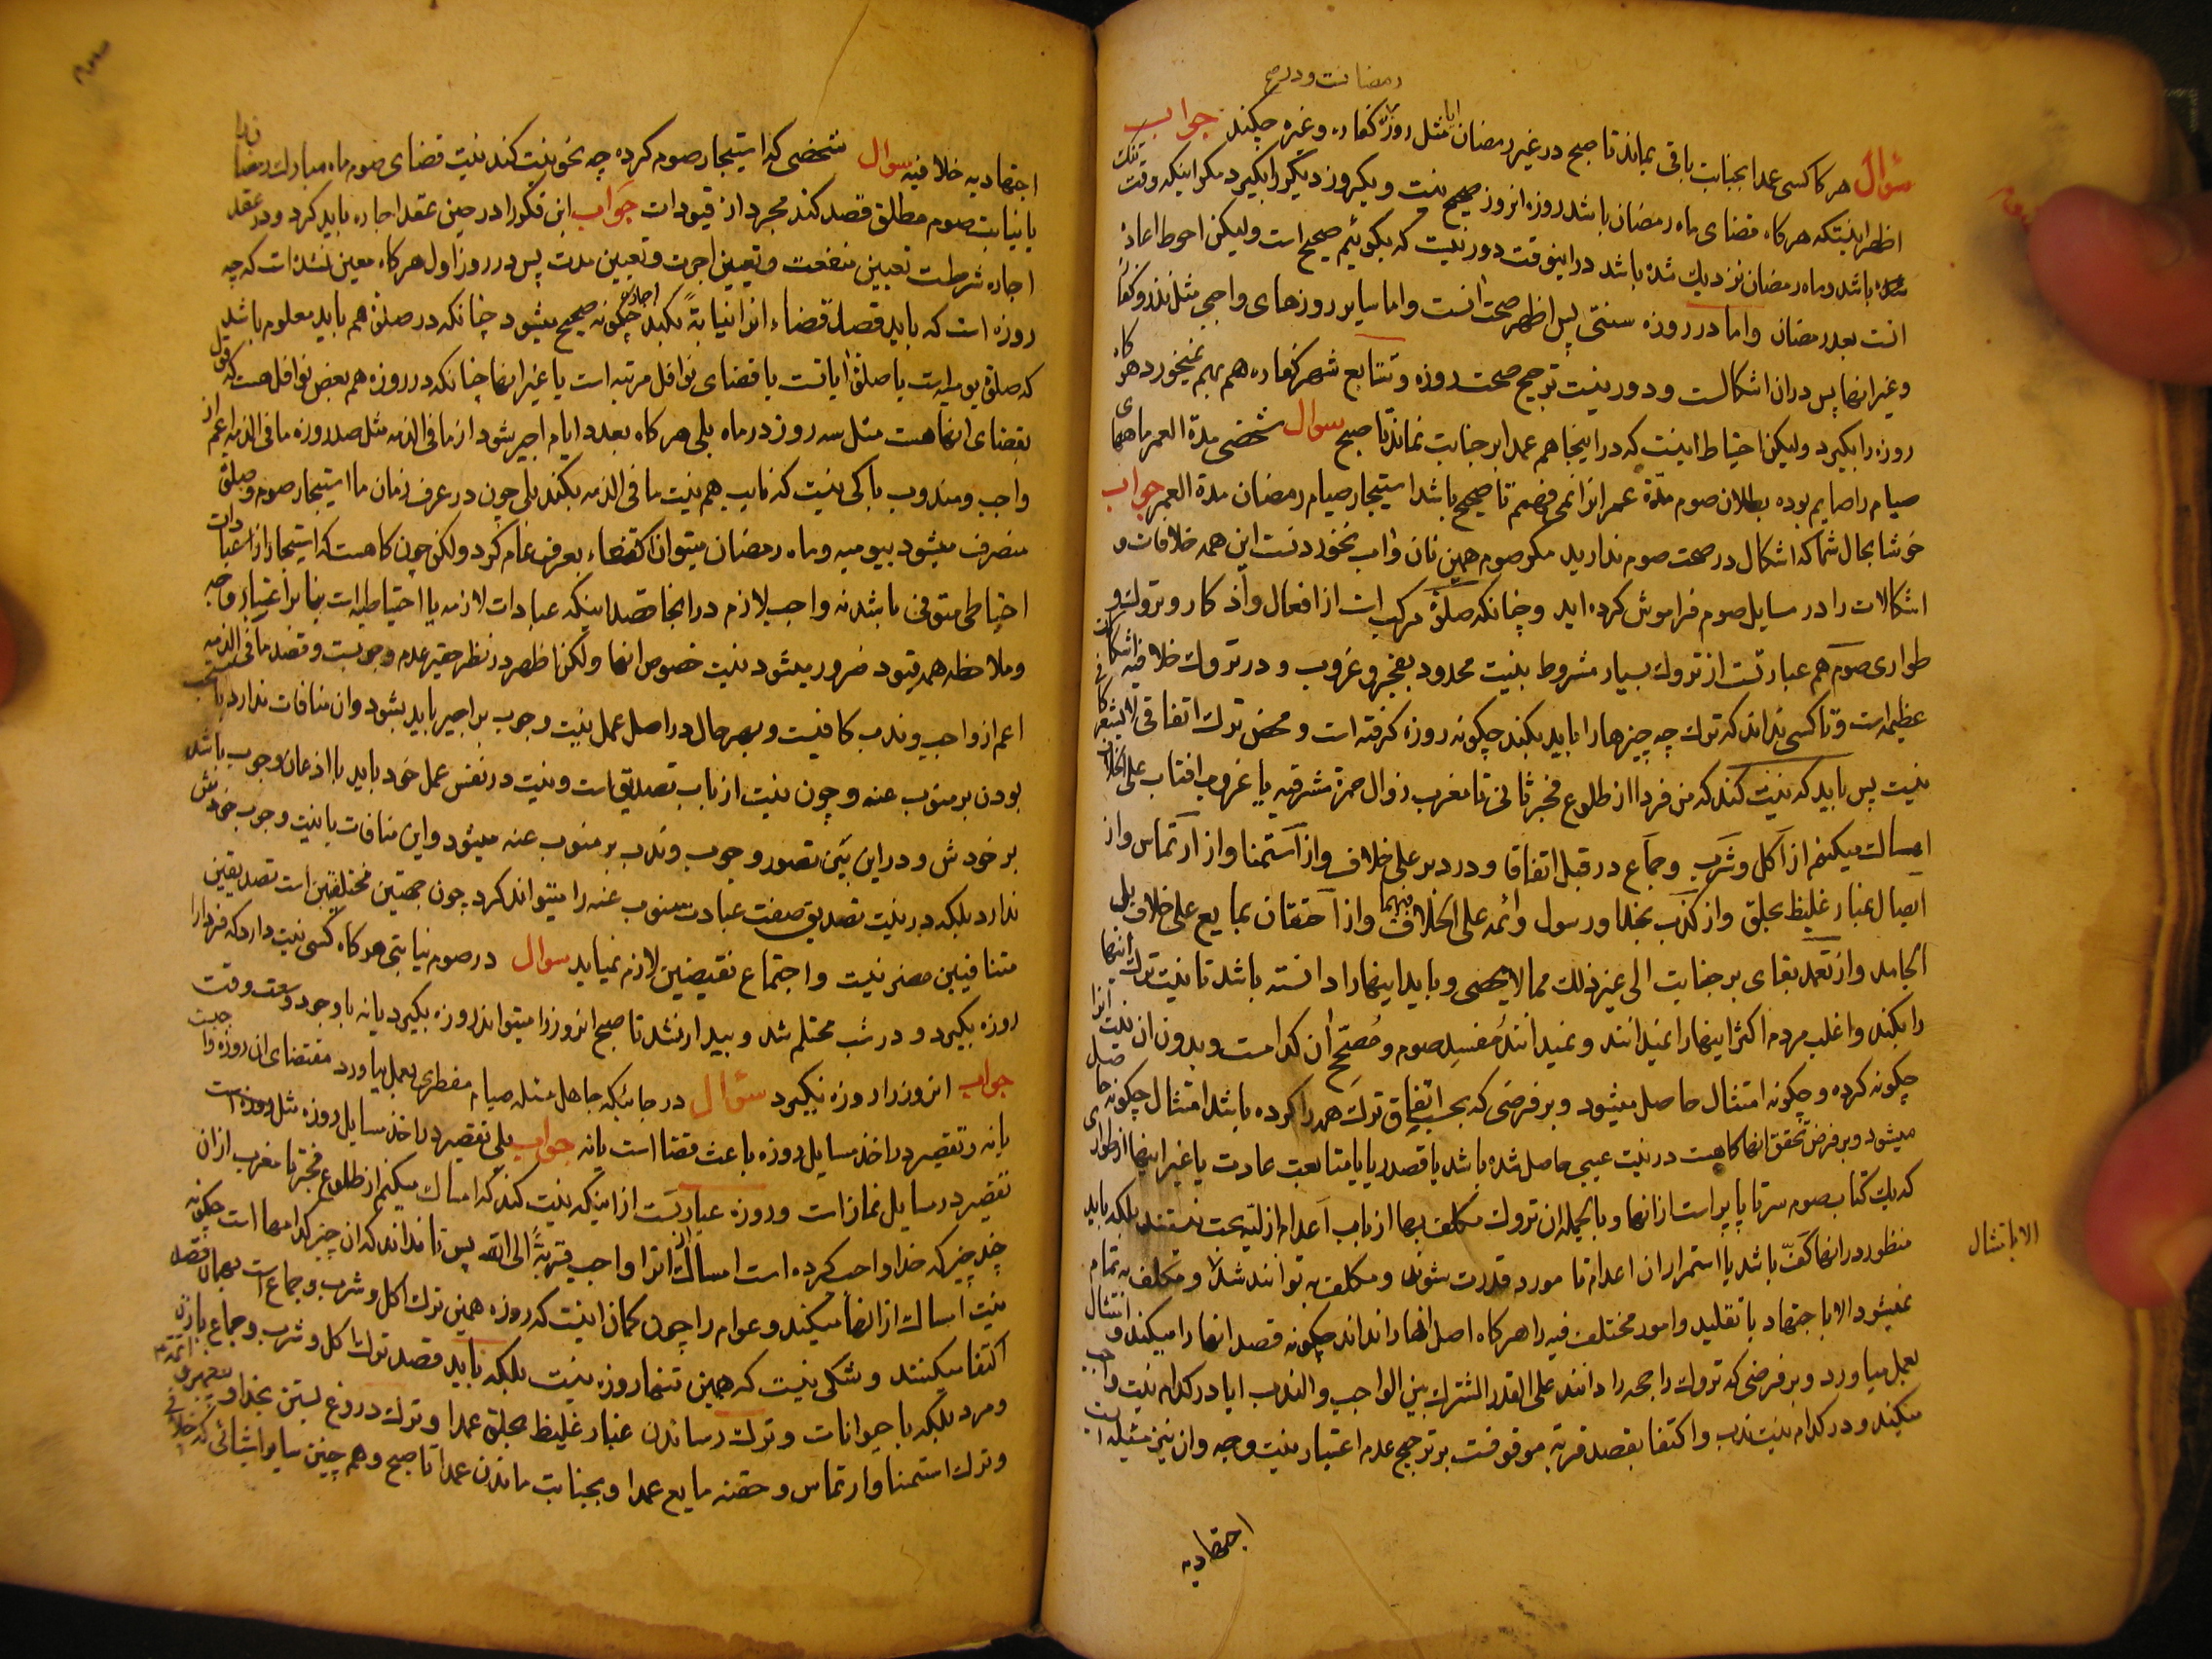 رمضانست و در
سؤال هر کا کسی عمدا بجنابت باقی بماند تا صبح در غیر رمضان ایا مثل روزهٔ کفاره و غیره چکند جواب
اظهر اینستکه هر کاه قضای ماه رمضان باشد روزه انروز صحیح نیست و یکروز دیگر را بکیرد مکر اینکه وقت تنک
شده باشد و ماه رمضان نزدیک شده باشد در اینوقت دور نیست که بکوئیم صحیح است ولیکن احوط اعاده
انست بعد رمضان و اما در روزه سنتی پس اظهر صحت انست و اما سایر روزهای واجبی مثل نذر و کفاره
و غیر انها پس دران اشکالست و دور نیست ترجیح صحت روزه و تتابع شهر کفاره هم بهم نمیخورد هر کاه
روزه را بکیرد ولیکن احتیاط اینست که در اینجا هم عمدا بر جنابت نماند تا صبح سوال شخصی مدة العمر ماههای
صیام را صایم بوده بطلان صوم مدّة عمر انرا نمی فهمم تا صحیح باشد استیجار صیام رمضان مدة العمر جواب
خوشا بحال شما که اشکال در صحت صوم ندارید مکر صوم همین نان و اب نخوردنست این همه خلافات و
اشکالات را در مسایل صوم فراموش کرده اید و چنانکه صلوة مرکب است از افعال و اذکار و تروک و
طواری صوم هم عبارتست از تروک بسیار مشروط بنیت محدود بفجر و غروب و در تروک خلافیه اشکالات
عظیمه است و تا کسی نداند که ترک چه چیزها را باید بکند چکونه روزه کرفته است و محض ترک اتفاقی
نیست پس باید که نیت کند که من فردا از طلوع فجر ثانی تا مغرب زوال حمرة مشرقیه یا غروب افتاب علی الخلاف
امساک میکنم از اکل و شرب و جماع در قبل اتفاقا و در دبر علی خلاف و از استمنا و از ارتماس و از
ایصال غبار غلیظ بحلق و از کذب بخدا و رسول و ائمه علی الخلاف فیهما و از احتقان بمایع علی خلاف بلی
الجامد و از تعمد بقای بر جنابت الی غیر ذلک مما لا یحصی و باید اینها را دانسته باشد تا نیت ترک اینها
را بکند و اغلب مردم اکثر اینها را نمیدانند و نمیدانند مفسد صوم و مصحح ان کدامست و بدون ان نیت انرا
چکونه کرده و چکونه امتثال حاصل میشود و بر فرضی که بحسب اتفاق ترک همه را کرده باشد امتثال چکونه حاصل
میشود و بر فرض تحقق انها کاهست در نیت عیبی حاصل شده باشد یا قصد ریا یا متابعت عادت یا غیر اینها از طواری
که یک کتاب صوم سرتاپا پر است از انها و بالجمله ان تروک مکلف بها از باب اعدام ازلیه بحت نیستند بلکه باید
منظور در انها کفّ باشد یا استمرار ان اعدام تا مورد قدرت شوند و مکلف به توانند شد و مکلف به تمام
نمیشود الا باجتهاد یا تقلید و امور مختلف فیه را هر کاه اصل انها را نداند چکونه قصد انها را میکند و امتثال
الا بامتثال
بعمل میاورد و بر فرضی که تروک راجحه را دانند علی القدر المشترک بین الواجب و الندب ایا در کدام نیت واجب
میکند و در کدام نیت ندب و اکتفا بقصد قربة موقوفست بر ترجیح عدم اعتبار نیت وجه و ان نیز مسئله است
اجتهادیه
اجتهادیه خلافیه سوال شخصی که استیجار صوم کرده چه نحو نیت کند نیت قضای صوم ماه مبارک رمضان
یا نیابت صوم مطلق قصد کند مجرد از قیودات جواب این فکر را در حین عقد اجاره باید کرد و در عقد
اجاره شرطست تعیین منفعت و تعیین اجرت و تعیین مدت پس در روز اول هر کاه معین نشده است که چه
روزه است که باید قصد قضاء انرا نیابة بکند اجاره چکونه صحیح میشود چنانکه در صلوة هم باید معلوم باشد
که صلوة یومیه است یا صلوة ایاتست یا قضای نوافل مرتبه است یا غیر انها چنانکه در روزه هم بعض نوافل هست که
بقضای انها هست مثل سه روز در ماه بلی هر کاه بعدد ایام اجیر شود از ما فی الذمه مثل صد روزه ما فی الذمه اعم از
واجب و مندوب باکی نیست که نایب هم نیت ما فی الذمه بکند بلی چون در عرف زمان ما استیجار صوم و صلوة
منصرف میشود بیومیه و ماه رمضان میتوان اکتفاء بعرف عام کرد ولکن چون کاهست که استیجار از عبادات
احتیاطی متوفی باشد نه واجب لازم در اینجا قصد اینکه عبادات لازمه یا احتیاطیه است بنابر اعتبار وجه
و ملاحظه همه قیود ضرور میشود نیت خصوص انها ولکن اظهر در نظر حقیر عدم وجوبست و قصد ما فی الذمه
اعم از واجب و ندب کافیست و بهر حال در اصل عمل نیت وجوب بر اجیر باید بشود و ان منافات ندارد با مستحب
بودن بر منوب عنه و چون نیت از باب تصدیق است و نیت در نفس عمل خود باید با اذعان وجوب باشد
بر خودش و در این بین تصور وجوب و ندب بر منوب عنه میشود و این منافات با نیت وجوب خودش
ندارد بلکه در نیت تصدیق صفت عبادت منوب عنه را میتواند کرد چون جهتین مختلفین است تصدیقین
متنافیین مضر نیست و اجتماع نقیضین لازم نمیاید سوال در صوم نیابتی هر کاه کسی نیت دارد که فردا را
روزه بکیرد و در شب محتلم شد و بیدار نشد تا صبح انروز را میتواند روزه بکیرد یا نه با وجود وسعت وقت
جواب انروز را روزه نکیرد سؤال در جائیکه جاهل مسئله صیام مفطری بعمل بیاورد مقتضای ان روزه واجبست
یا نه و تقصیر در اخذ مسایل روزه باعث قضا است یا نه جواب بلی تقصیر در اخذ مسایل روزه مثل
تقصیر در مسایل نماز است و روزه عبارتست از اینکه نیت کند که امساک میکنم از طلوع فجر تا مغرب از ان
چند چیز که خدا واجب کرده است امساک از انرا واجب قربةً الی الله پس تا نداند که ان چیز کدامها است چکونه
نیت امساک از انها میکند و عوام را چون کمان اینست که روزه همین ترک اکل و شرب و جماع است بهمان قصد
اکتفا میکنند و شکی نیست که همین تنها روزه نیست بلکه باید قصد ترک اکل و شرب و جماع بازن
و مرد بلکه با حیوانات و ترک رساندن غبار غلیظ بحلق عمدا و ترک دروغ بستن بخدا و پیغمبر و ائمه
و ترک استمنا و ارتماس و حقنه مایع عمدا و بجنابت ماندن عمدا تا صبح و هم چنین سایر اشیائی که خلافی